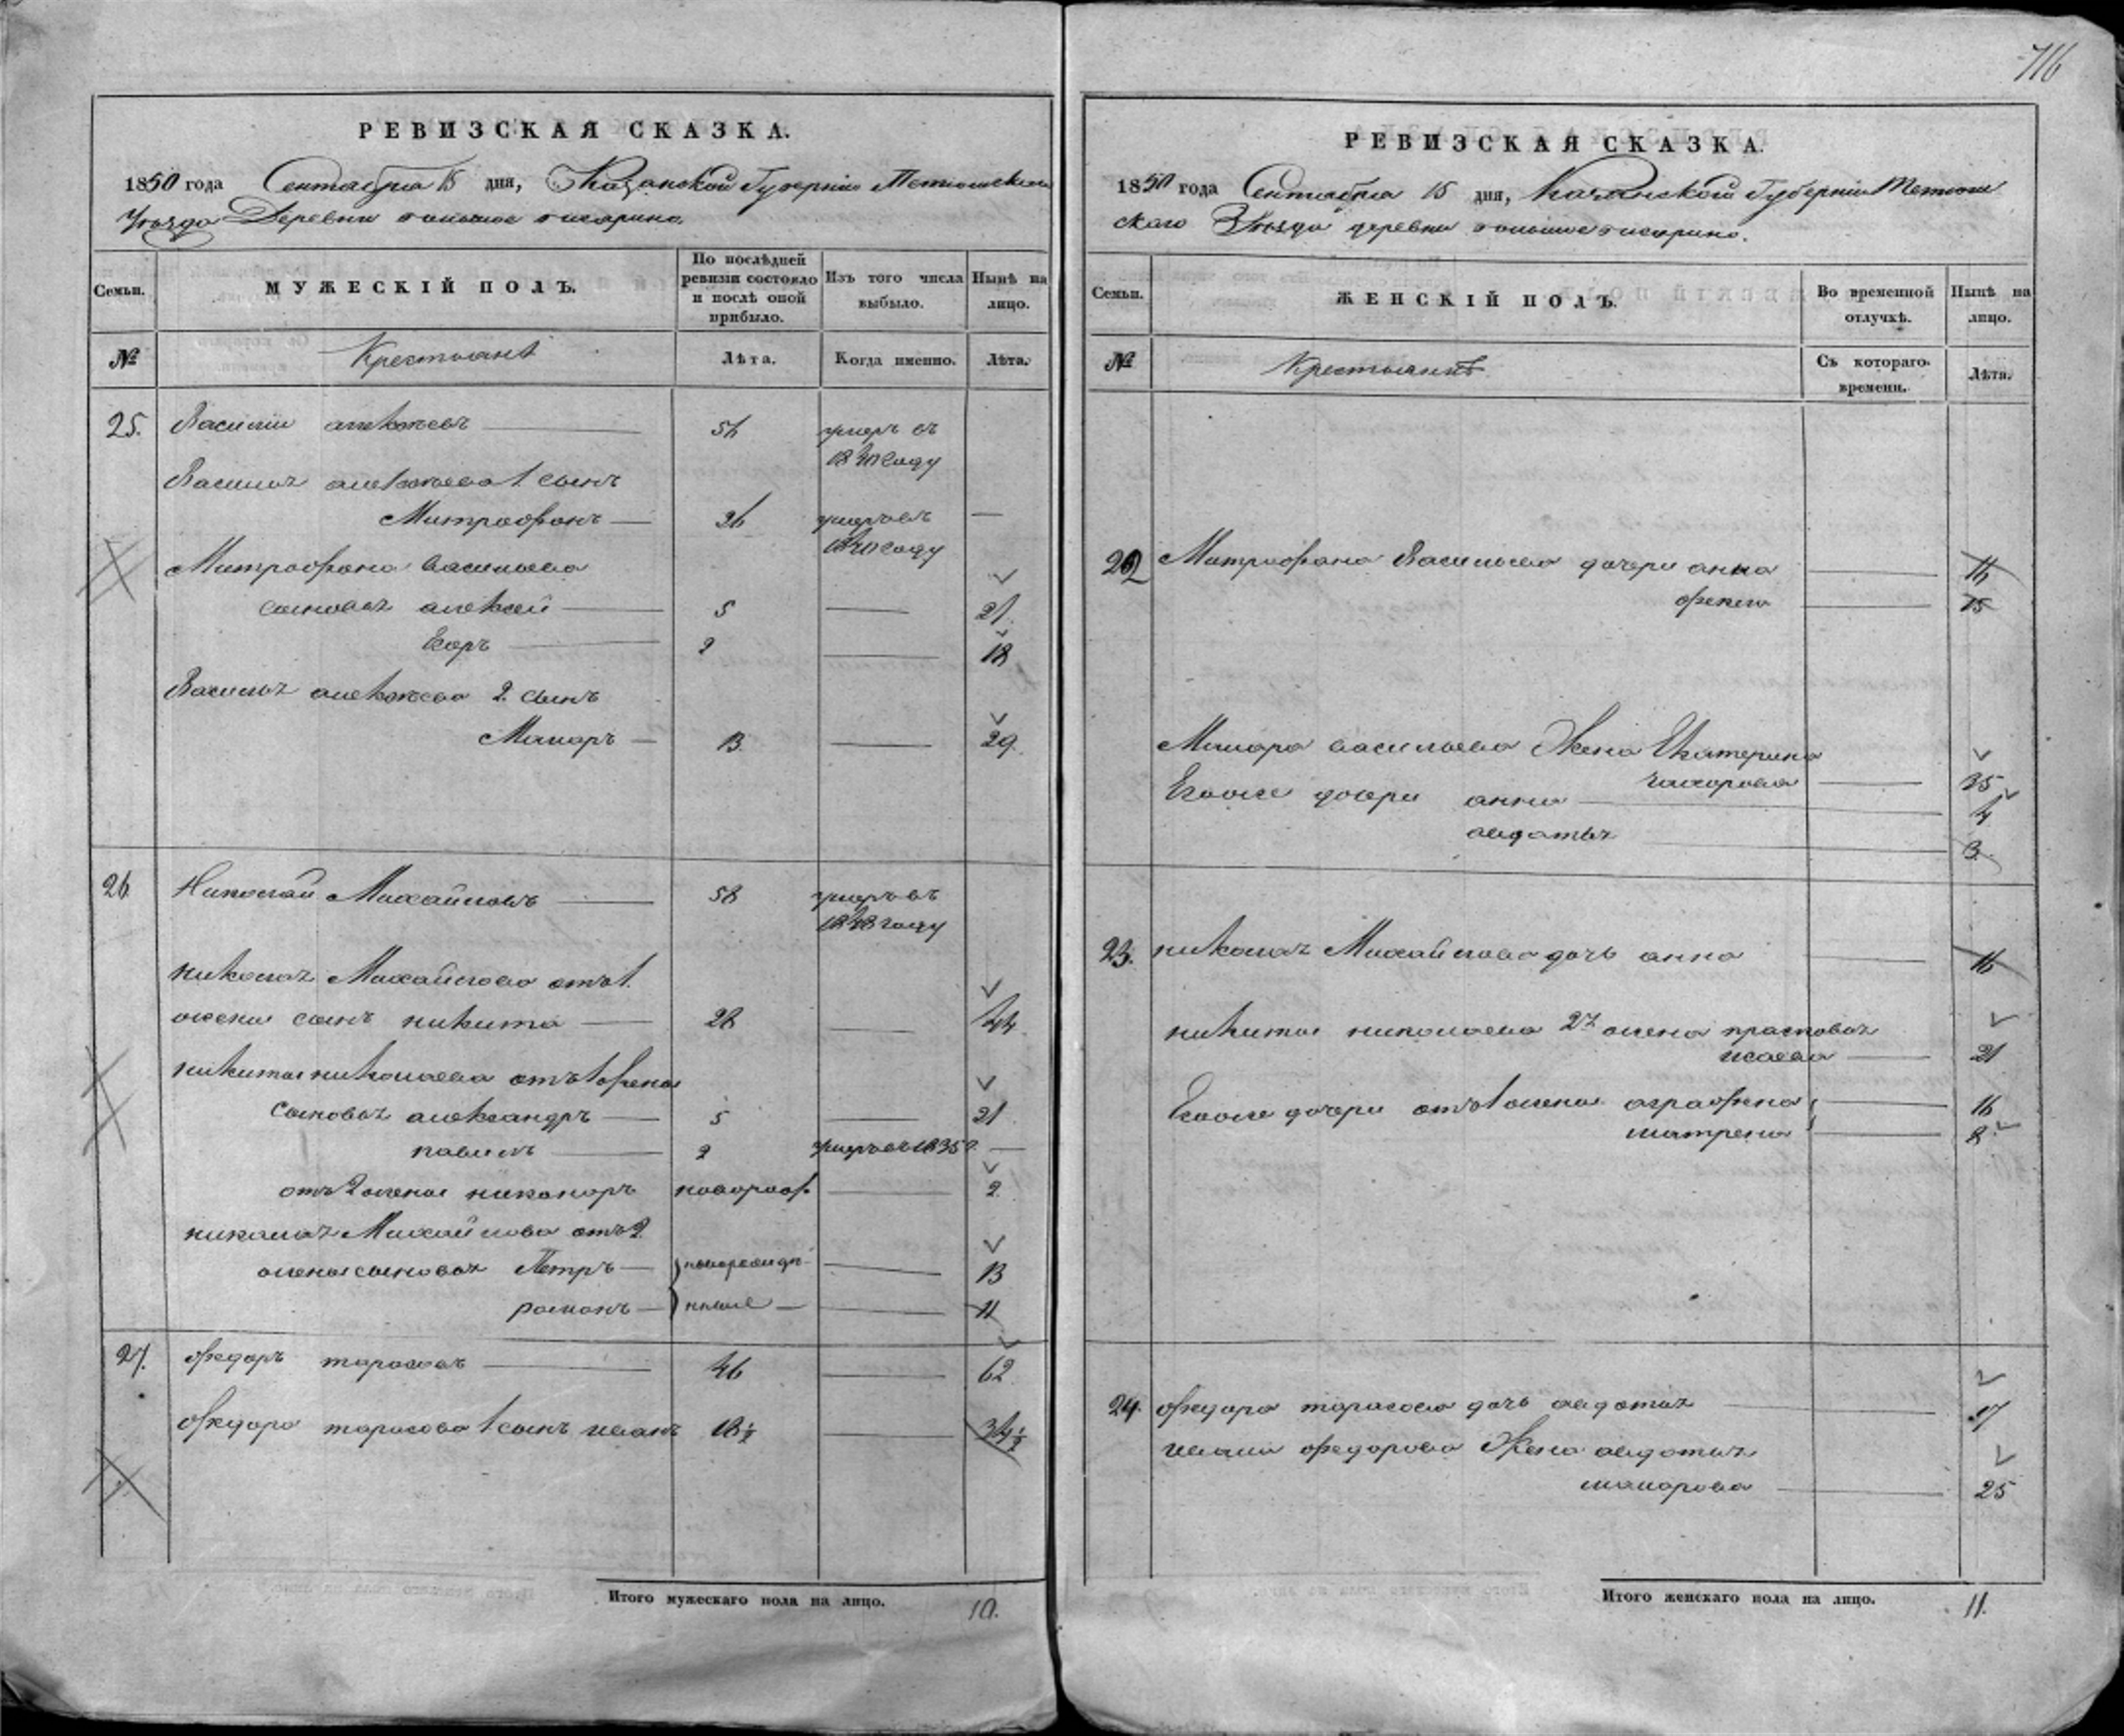 716
РЕВИЗСКАЯ СКАЗКА.
1850 года Сентября 15 дня, Казанской Губернии Тетюшскаго
Уѣзда Деревни
Семьи.
МУЖЕСКІЙ ПОЛЪ.
По послѣдней ревизіи состояло и послѣ оной прибыло.
Изъ того числа выбыло.
Нынѣ на лицо.
№
Крестьянѣ
Лѣта.
Когда именно.
Лѣта.
25. Василии алексѣевъ 54 умеръ въ
1840 году
Василья алексѣева 1. сынъ
Митрофанъ 26 умеръ въ —
1840 году
Митрофана васильева
сыновья алексѣй 5 21.
Егоръ 2 18
Василья алексѣева 2. сынъ
Макаръ 13. 29.
26 Николай Михайловъ 58 умеръ въ
1848 году
николая Михайлова отъ 1.
жены сынъ никита 28 44.
никиты николаева отъ 1 жены
сыновья александръ 5 21
павилъ 2 умеръ въ 1835 г. —
отъ 2 жены никаноръ новорож. 2.
николая Михайлова отъ 2
жены сыновья Петръ новорожде 13
романъ нные 11
27. Федоръ тарасовъ 46 62
Федора тарасова 1 сынъ иванъ 18 ½ 34 ½
Итого мужескаго пола на лицо. 10.
РЕВИЗСКАЯ СКАЗКА.
1850 года Сентября 15 дня, Казанской Губерніи Тетюш
скаго Уѣзда деревни
Семьи.
ЖЕНСКІЙ ПОЛЪ.
Во временной отлучкѣ.
Нынѣ на лицо.
№
Крестьянѣ
Съ котораго времени.
Лѣта.
22 Митрофана Васильева дочери анна 16
фекла 15
Макара васильева Жена Екатерина
35
Егоже дочери анна 4
авдотья 3.
23. николая Михайлова дочь анна 16
никиты николаева 2я жена прасковья
исаева 21
Егоже дочери отъ 1 жены аграфена 16
матрена 8
24. Федора тарасова дочь авдотья 17
ивана федорова Жена авдотья
макарова 25
Итого женскаго пола на лицо. 11.